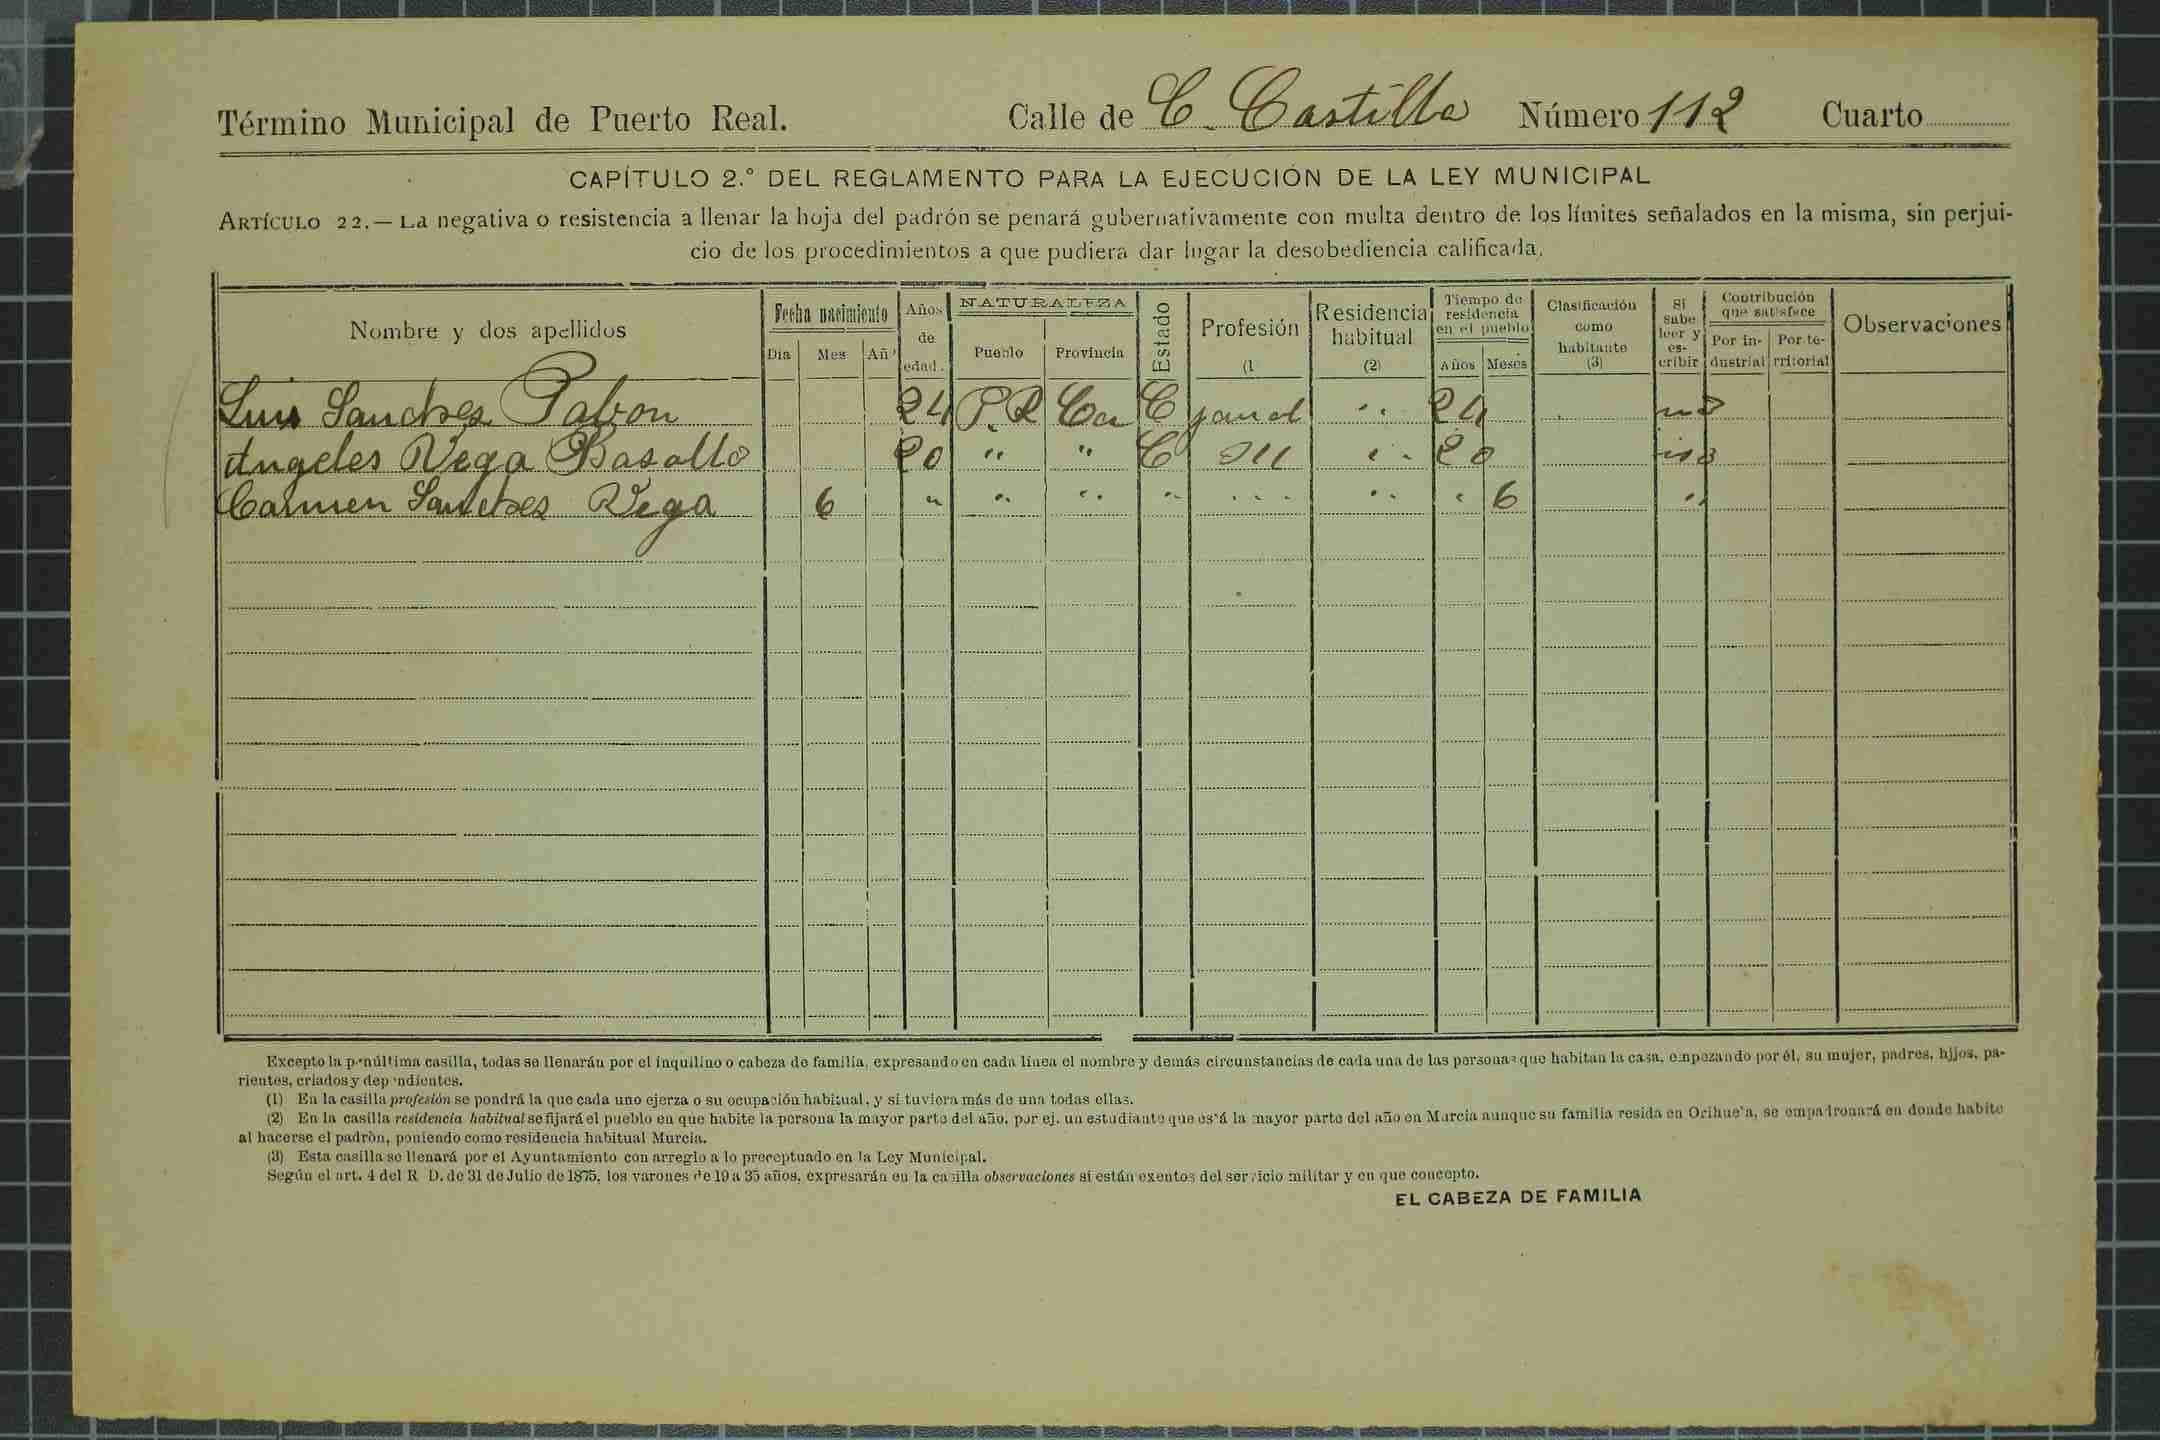 Término Municipal de Puerto Real. Calle de C. Castilla Número 112 Cuarto
CAPÍTULO 2.º DEL REGLAMENTO PARA LA EJECUCIÓN DE LA LEY MUNICIPAL
ARTÍCULO 22.— La negativa o resistencia a llenar la hoja del padrón se penará gubernativamente con multa dentro de los límites señalados en la misma, sin perjui-
cio de los procedimientos a que pudiera dar lugar la desobediencia calificada.
Nombre y dos apellidos
Fecha nacimiento
Día Mes Añ
Años de edad.
NATURALEZA
Pueblo Provincia
Estado
Profesión (1
Residencia habitual (2)
Tiempo de residencia en el pueblo
Años Meses
Clasificación como habitante (3)
Si sabe leer y es- cribir
Contribución que satisface
Por in- dustrial Por te- rritorial
Observaciones
Luis Sanchez Pabon 24 P. R Ca C jornal " 24 no
Angeles Vega Basallo 20 " " C " 20 no
Carmen Sanchez Vega 6 " " " " " " " 6 "
Excepto la penúltima casilla, todas se llenarán por el inquilino o cabeza de familia, expresando en cada línea el nombre y demás circunstancias de cada una de las personas que habitan la casa, empezando por él, su mujer, padres, hijos, pa-
rientes, criados y dependientes.
(1) En la casilla profesión se pondrá la que cada uno ejerza o su ocupación habitual, y si tuviera más de una todas ellas.
(2) En la casilla residencia habitual se fijará el pueblo en que habite la persona la mayor parte del año, por ej. un estudiante que está la mayor parte del año en Murcia aunque su familia resida en Orihuela, se empadronará en donde habite
al hacerse el padrón, poniendo como residencia habitual Murcia.
(3) Esta casilla se llenará por el Ayuntamiento con arreglo a lo preceptuado en la Ley Municipal.
Según el art. 4 del R D. de 31 de Julio de 1875, los varones de 19 a 35 años, expresarán en la casilla observaciones si están exentos del servicio militar y en que concepto.
EL CABEZA DE FAMILIA